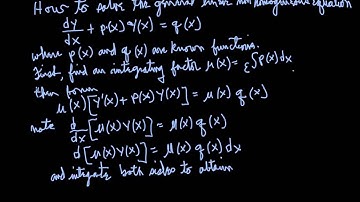 How to solve the general linear nonhomogeneous equation
dy/dx + p(x) y(x) = q(x)
where p(x) and q(x) are known functions.
First, find an integrating factor μ(x) = e^∫p(x)dx
then form
μ(x)[y'(x) + p(x) y(x)] = μ(x) q(x)
note d/dx [μ(x) y(x)] = μ(x) q(x)
d[μ(x) y(x)] = μ(x) q(x) dx
and integrate both sides to obtain